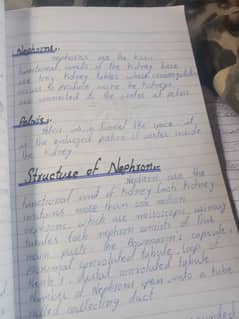 Nephorns.
Nephorns are the basic
functional units of the kidney
are tiny kidney tubes whose
to produce urine the kidneys
are connected to the ureter at pelvis.
Pelvis.
Pelvis is a funnel like space it
is the enlarged ureter inside
the kidney
Structure of Nephron.
Nephron are the
functional unit of kidney Each kidney
contains more than one million
nephrons, which are microscopic urinary
tubules Each nephron consists of four
main parts the Bowmann's capsule,
proximal convoluted tubule, Loop of
Henle's, distal convoluted tubule
Number of Nephrons open into a tube
called collecting duct